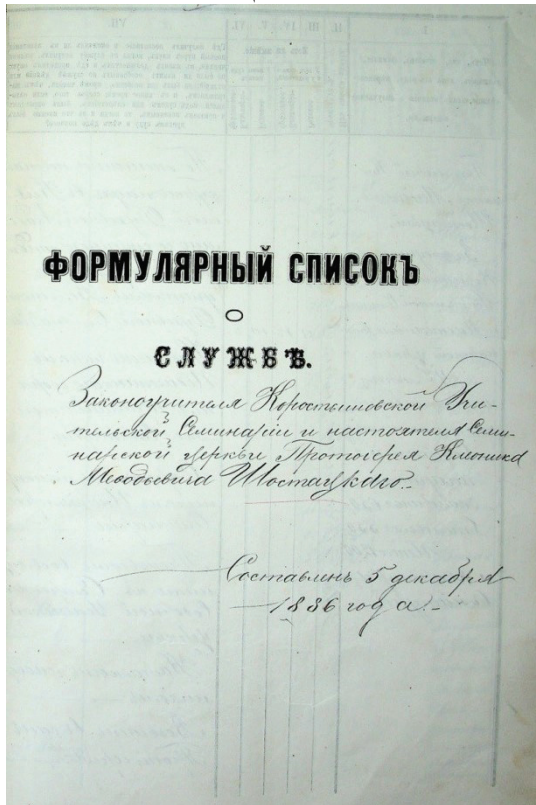 ФОРМУЛЯРНЫЙ СПИСОКЪ
О
СЛУЖБѢ.
Законоучителя Коростышовской Учи-
тельской Семинаріи и настоятеля Семи-
нарской церкви Протоіерея Климента
Меѳодьевича Шостацкаго.
Составленъ 5 декабря
1886 года.